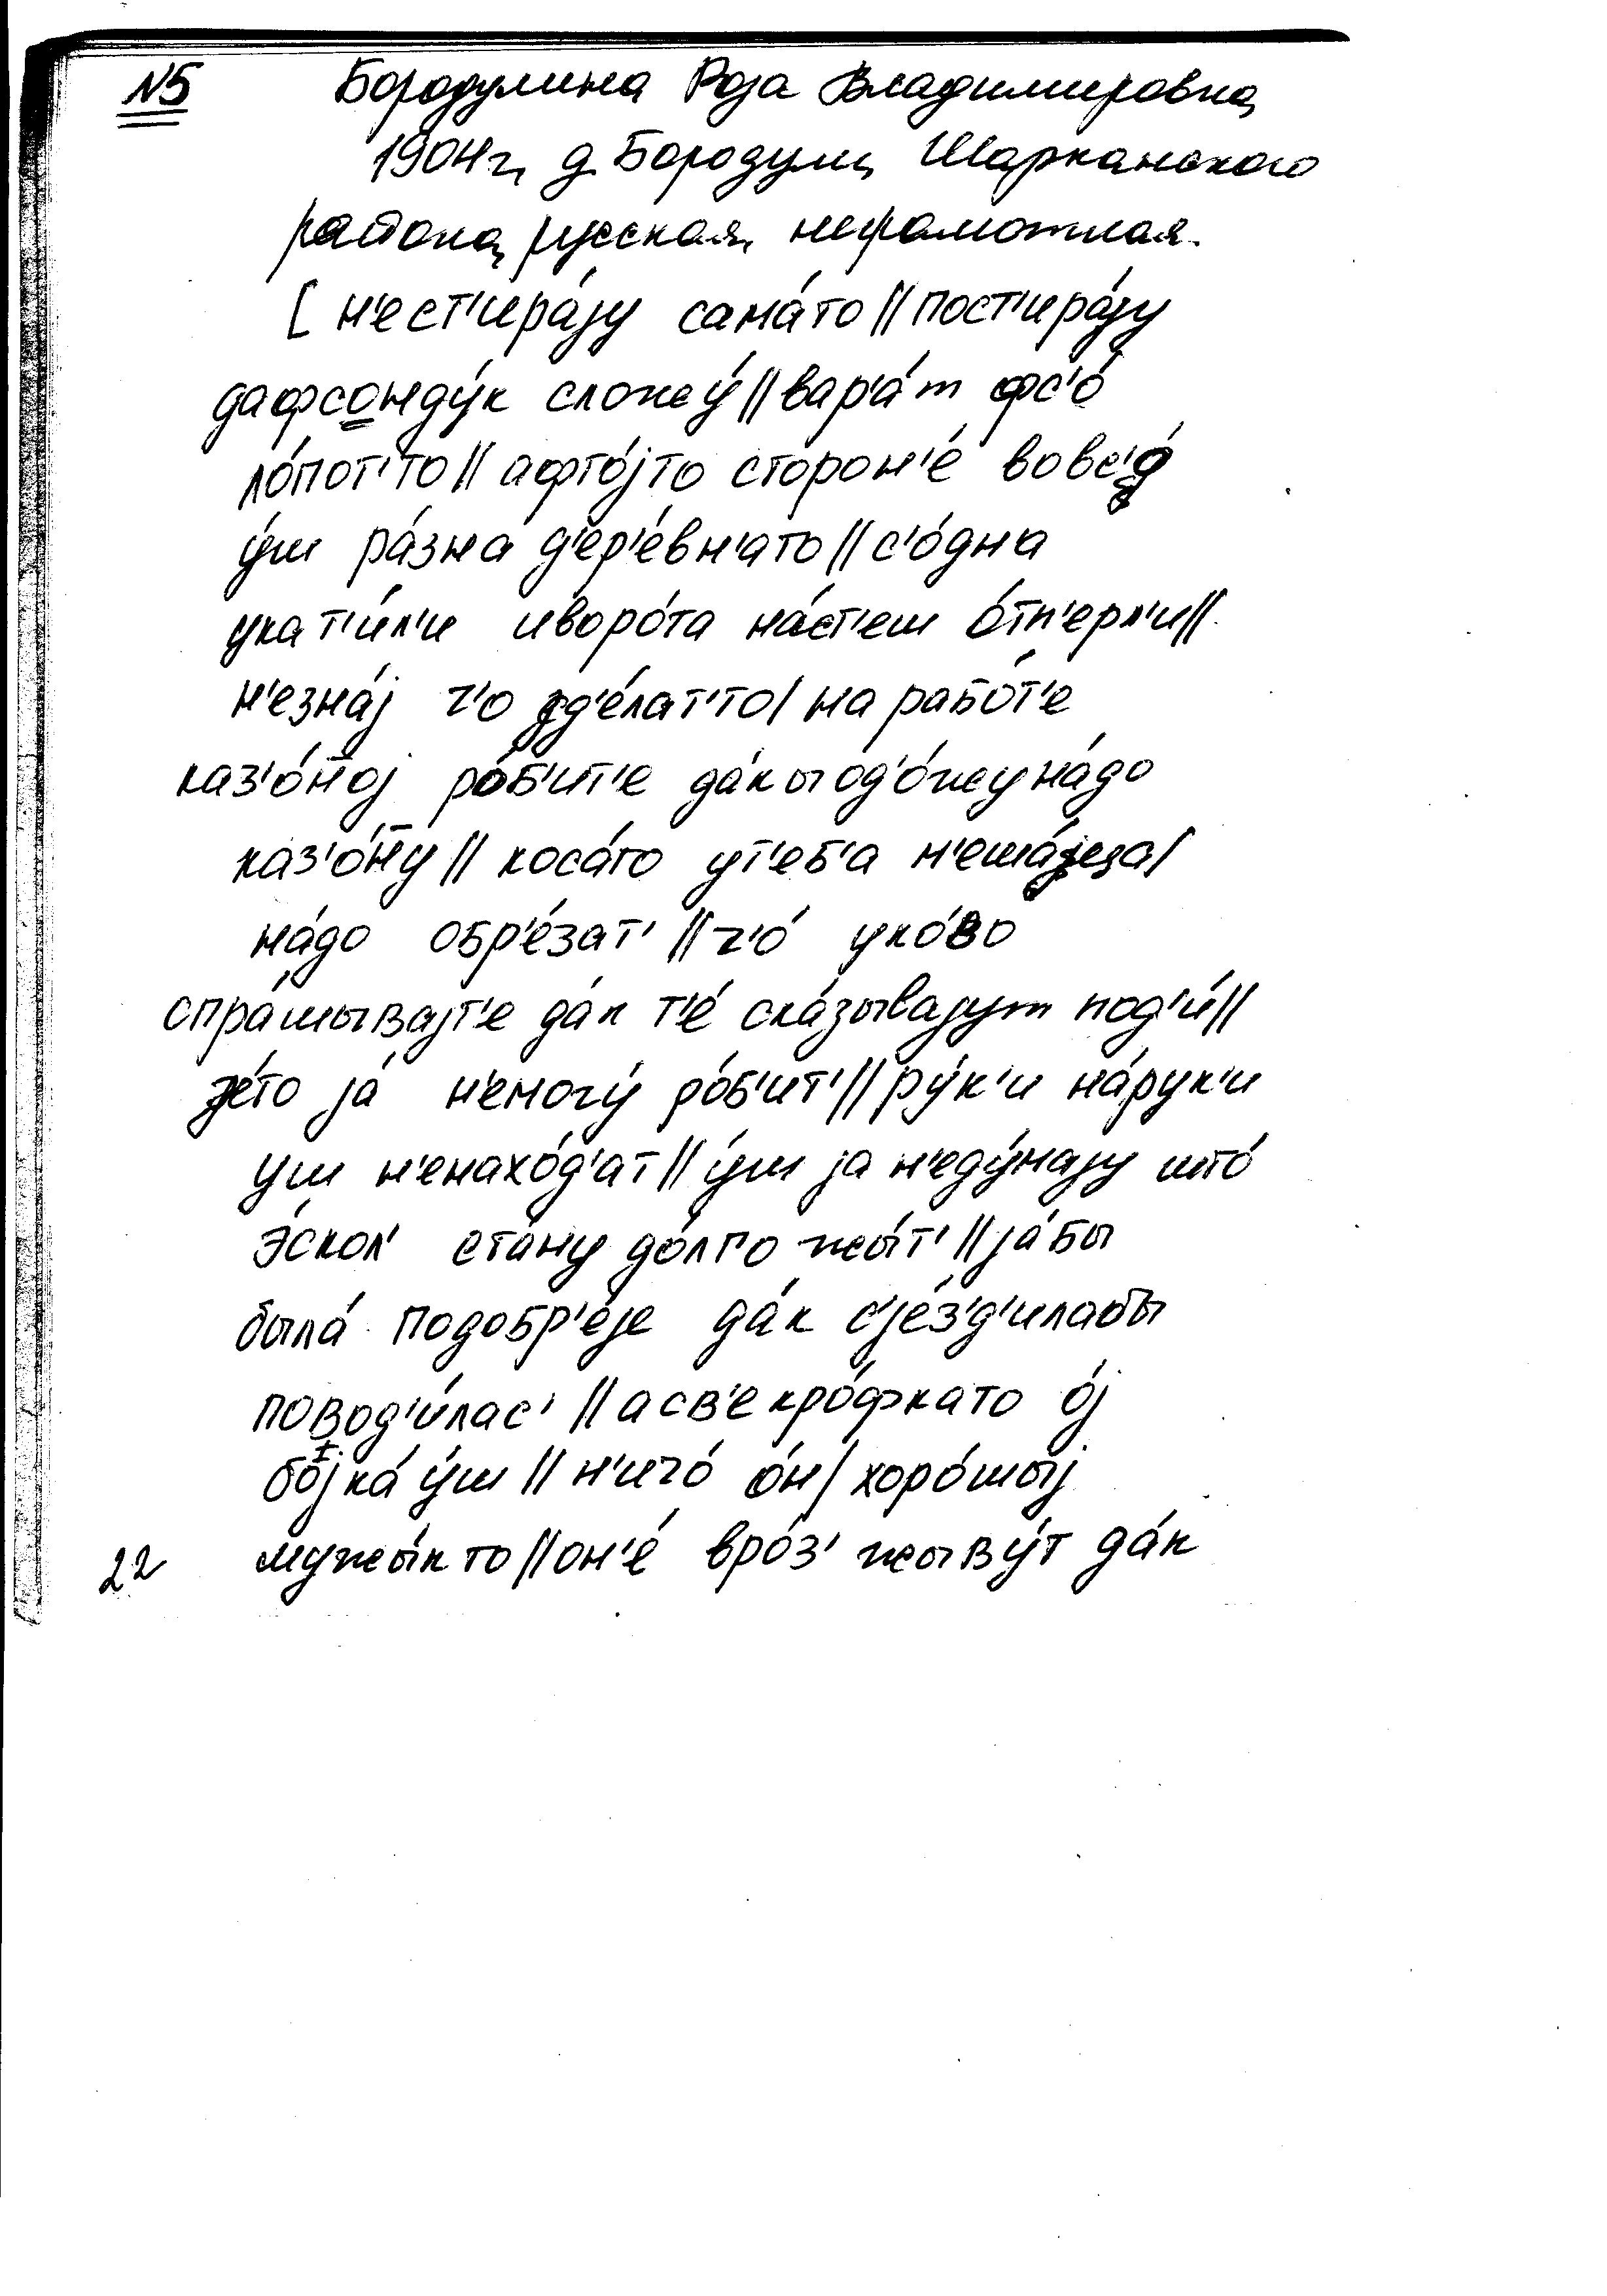 N5 Бородулина Роза Владимировна,
1904г, д. Бородули, Шарканского
района, русская, неграмотная.
[ н'ест'ира́jу сама́то || пост'ира́jу
дафсонду́к сложу́ || вар'а́т фс'о́
ло́пот'то || афто́jто сторон'е́ вовс'о́
у́ш ра́зна д'ер'е́вн'ато || с'о́дна
укат'и́л'и иворо́та на́ст'еш о́тп'ерл'и ||
н'езна́j ч'о зд'е́лат'то | на рабо́т'е
каз'о́н̄оj ро́б'ит'е да́к ы од'о́жу на́до
каз'о́н̄у || коса́то ут'еб'а м'еша́jеца |
на́до обр'е́зат' || ч'о́ уко́во
спра́шывајт'е да́к т'е́ ска́зывајут под'и́ ||
је́то ја́ н'емогу́ ро́б'ит' || ру́к'и на́рук'и
уш н'енахо́д'ат || у́ш ја н'еду́мају што́
э́скол' ста́ну до́лго жы́т' || ја́бы
была́ подобр'е́је да́к с'је́з'д'илабы
повод'и́лас' || асв'екро́фкато о́j
боjка́ у́ш || н'ичо́ о́н | хоро́шыj
мужы́к то || он'е́ вро́з' жыву́т да́к
22